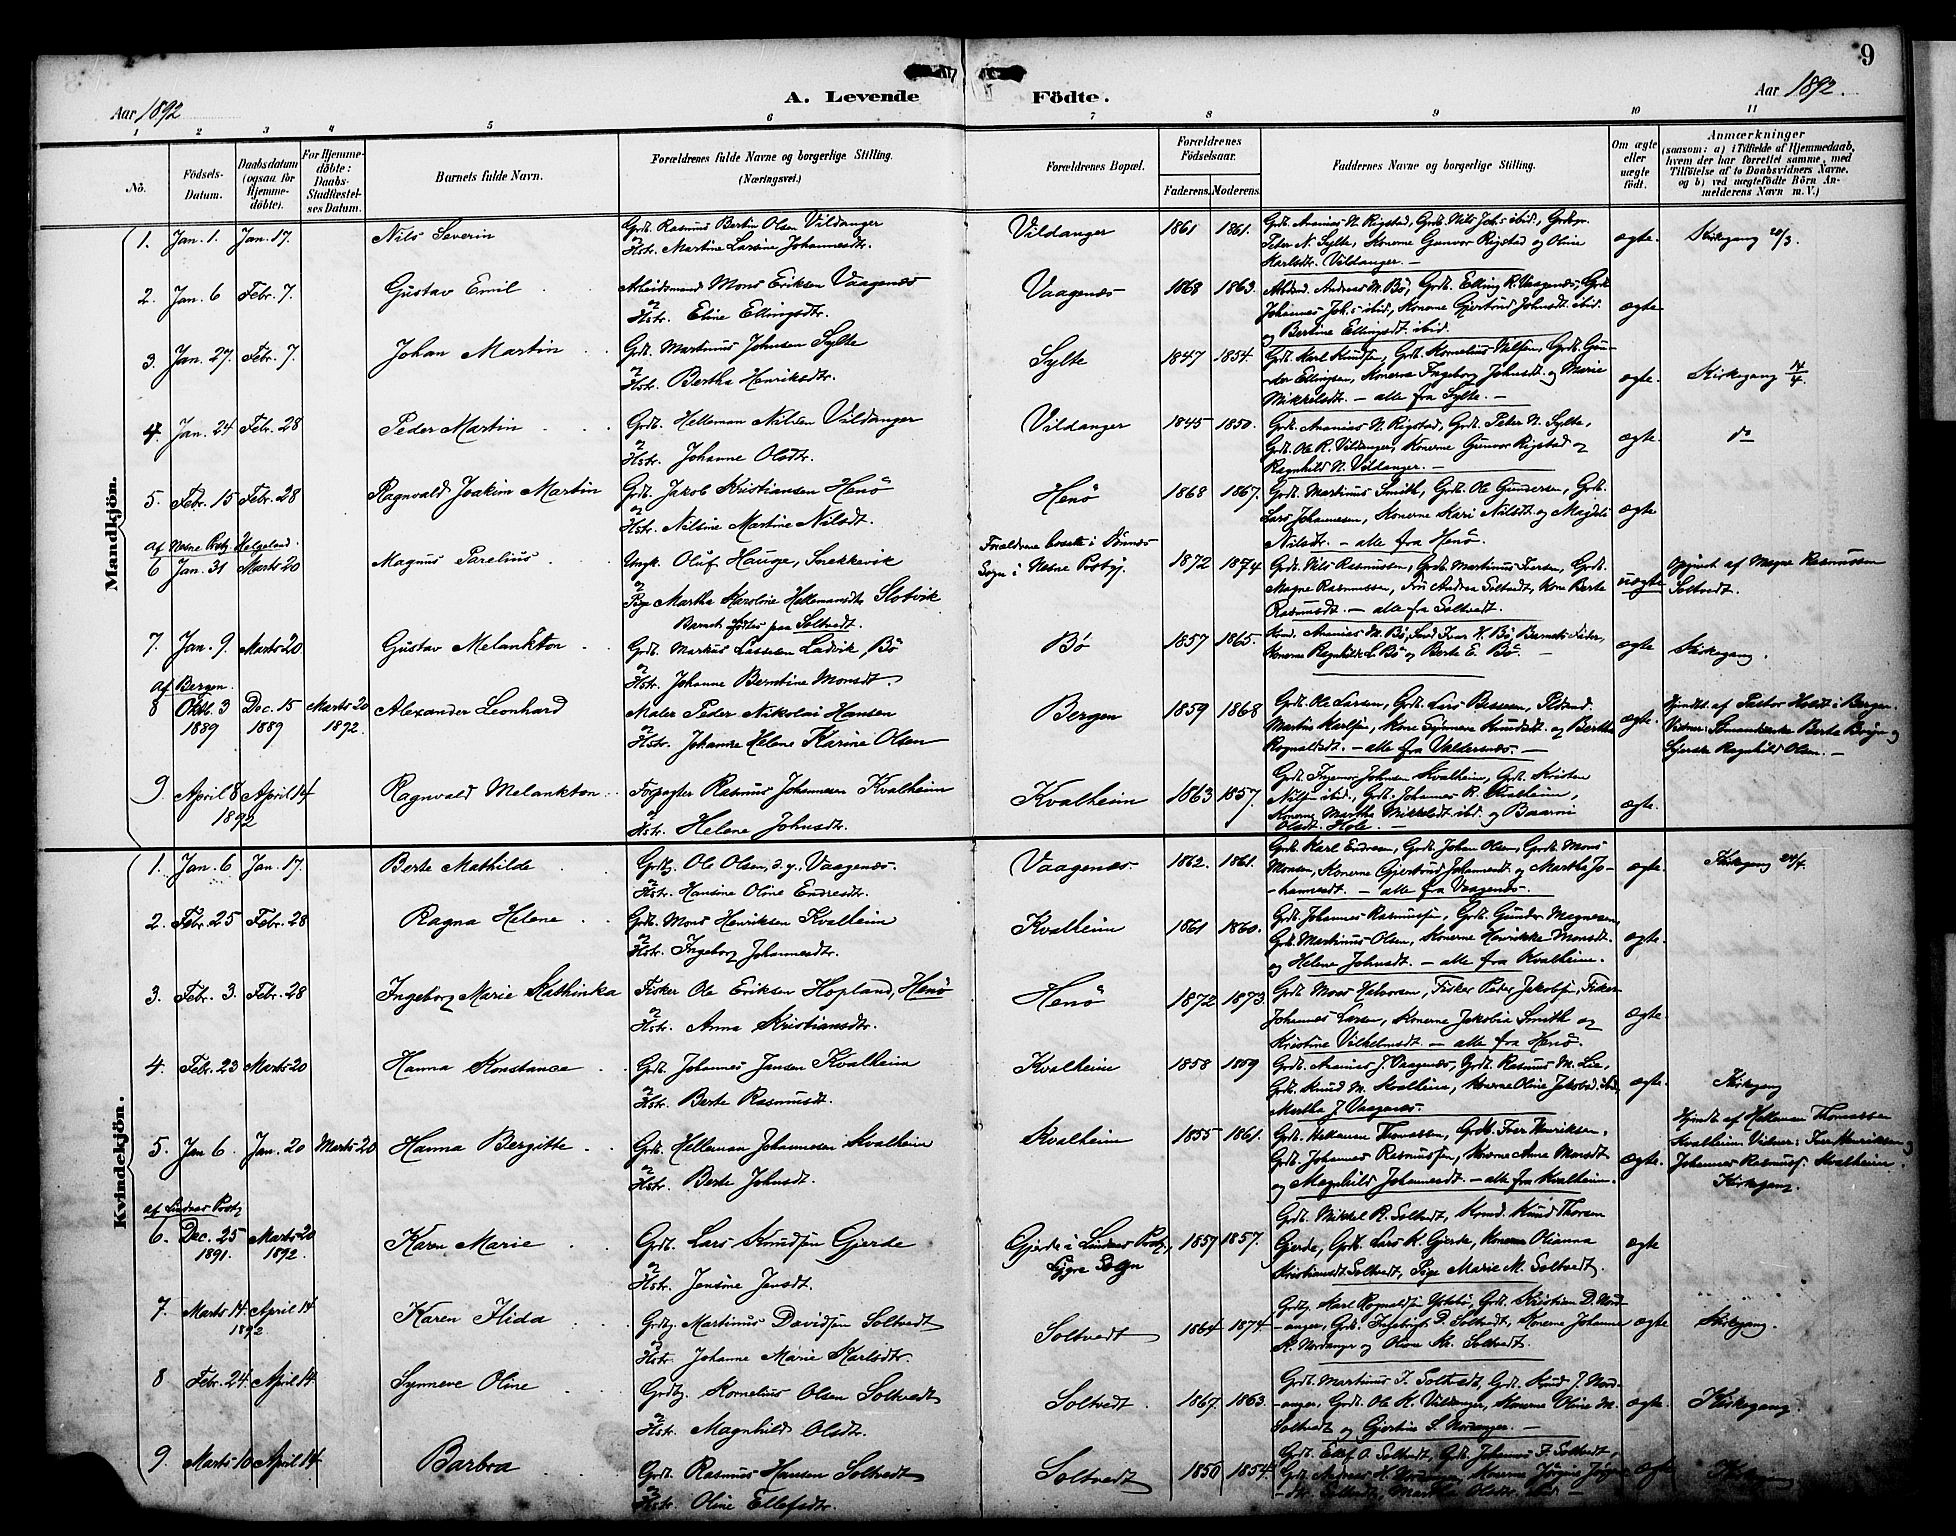 9
Aar 1892
A. Levende Födte.
Aar 1892.
1 2 3 4 5 6 7 8 9 10 11
No.
Födsels-Datum.
Daabsdatum (ogsaa for Hjemme-döbte).
For Hjemme-döbte: Daabs-Stadfæstel-ses Datum.
Barnets fulde Navn.
Forældrenes fulde Navne og borgerlige Stilling.
(Næringsvei.)
Forældrenes Bopæl.
Forældrenes Födselsaar.
Faderens. Moderens.
Faddernes Navne og borgerlige Stilling.
Om ægte eller uægte födt.
Anmærkninger
(saasom: a) i Tilfælde af Hjemmedaab,
hvem der har forrettet samme, med
Tilföielse af to Daabsvidners Navne.
og b) ved uægtefödte Börn An-
melderens Navn m. V.)
Mandkjön.
1. Jan. 1. Jan. 17. Nils Severin
Grdb. Rasmus Bertin Olsen Vildanger
Hstr. Martine Larsine Johannesdtr.
Vildanger 1861 1861.
Grdb. Ananias N. Rigstad, Grdb. Nils Johs ibid.,
Peter N. Sylte, Konerne Gunvor Rigstad og Oline
Karlsdtr. Vildanger. —
ægte. Kirkegang 20/3.
2. Jan. 6 Febr. 7. Gustav Emil
Arbeidsmand Mons Eriksen Vaagenæs
Hstr. Eline Ellingsdtr.
Vaagenæs 1868 1863.
Andreas M. Bö, Grdb. Elling R. Vaagenæs, Grdb.
Johannes Joh.s ibid., Konerne Gjertrud Johnsdt. ibid.
og Bertine Ellingsdt. ibid.
ægte
3. Jan. 27. Febr. 7. Johan Martin
Grdb. Martinus Johnsen Sylte
Hstr. Bertha Henriksdtr.
Sylte 1847 1854.
Grdb. Karl Knudsen, Grdb. Kornelius Nilsen, Grdb. Gun-
der Ellingsen, Konerne Ingeborg Johnsdt. og Marie
Mikkelsdt. — alle fra Sylte. —
ægte. Kirkegang 17/4.
4. Jan. 24 Febr. 28 Peder Martin
Grdb. Helleman Nilsen Vildanger
Hstr. Johanne Olsdtr.
Vildanger 1845 1850.
Grdb. Ananias N. Rigstad, Grdb. Peter N. Sylte,
Grdb. Ole R. Vildanger, Konerne Gunvor Rigstad og
Ragnhild N. Vildanger. —
ægte. do
5. Febr. 15 Febr. 28 Ragnvald Joakim Martin
Grdb. Jakob Kristiansen Henö
Hstr. Nilsine Martine Nilsdt.
Henö 1868 1867.
Grdb. Martinus Smith, Grdb. Ole Gundersen, Grdb.
Lars Johannesen, Konerne Kari Nilsdt. og Magdli
Nilsdt. — alle fra Henö.
ægte
af Nesne Prstg. Helgeland.
6 Jan. 31 Marts 20 Magnus Parelius
Ungk. Oluf Hauge, Snekkevik
Pige Martha Karoline Hellemansdtr. Slotvik
Barnet födtes paa Soltvedt.
Forældrene bosatte i Dönnæs
Sogn i Nesne Prstgj.
1872 1874
Grdb. Nils Rasmussen, Grdb. Martinus Iversen, Grdb.
Magne Rasmussen, Fru Andrea Soltvedt, Kone Berte
Rasmusdt. — alle fra Soltvedt.
uægte
Opgivet af Magne Rasmussen
Soltvedt.
7. Jan. 9. Marts 20 Gustav Melankton
Grdb. Markus Lassesen Ladvik Bö
Hstr. Johanne Berntine Monsdt.
Bø 1857 1865.
Ananias M. Bö, Iver H. Bö, Barnets Fader,
Konerne Ragnhild L. Bö og Berte E. Bö. —
ægte Kirkegang.
af Bergen.
8 Oktb. 3 1889 Dec. 15 1889 Marts 20 1892. Alexander Leonhard
Maler Peder Nikolai Hansen
Hstr. Johanne Helene Karine Olsen
Bergen 1859 1868
Grdb. Ole Larsen, Grdb. Lars Bessesen,
Martin Karlsen, Kone Synneve Knudsdt. og Bertha
Rognaldsdt. — alle fra Valdersnæs. —
ægte.
Hjdbt. af Pastor Holdt i Bergen.
Vidner: Berta Börge og
Syerske Ragnhild Olsen. —
9. April 8 1892 April 14 Ragnvald Melankton
Forpagter Rasmus Johannesen Kvalheim
Hstr. Helene Johnsdtr.
Kvalheim 1863 1857.
Grdb. Ingemar Johnsen Kvalheim, Grdb. Kristen
Nilsen ibid., Grdb. Johannes R. Kvalheim,
Konerne Martha Mikkelsdt. ibid. og Baaroni
Olsdt. Hole. —
ægte.
Kvindekjön.
1. Jan. 6 Jan. 17. Berte Mathilde
Grdbr. Ole Olsen, d. y., Vaagenæs.
Hstr. Hansine Oline Endresdtr.
Vaagenæs 1862. 1861.
Grdb. Karl Endresen, Grdb. Johan Olsen, Grdb. Mons
Monsen, Konerne Gjertrud Johannesdt. og Martha Jo-
hannesdt. — alle fra Vaagenæs.
ægte. Kirkegang 24/4.
2. Febr. 25 Febr. 28 Ragna Helene
Grdb. Mons Henriksen Kvalheim
Hstr. Ingeborg Johannesdtr.
Kvalheim 1861 1860.
Grdb. Johannes Rasmussen, Grdb. Gunder Magnesen,
Grdb. Martinus Olsen, Konerne Henrikke Monsdt.
og Helene Johnsdt. — alle fra Kvalheim.
ægte.
3. Febr. 3. Febr. 28 Ingeborg Marie Kathinka
Fisker Ole Eriksen Hopland, Henö
Hstr. Anna Kristiansdtr.
Henö 1872 1873.
Grdb. Mons Halvorsen, Fisker Peder Jakobsen, Fisker
Johannes Larsen, Konerne Jakobia Smith og
Kristine Vilhelmsdt. — alle fra Henö.
ægte.
4. Febr. 23 Marts 20 Hanna Konstance
Grdb. Johannes Jansen Kvalheim
Hstr. Berte Rasmusdt.
Kvalheim 1858 1859
Grdb. Ananias J. Vaagenæs, Grdb. Rasmus M. Lie,
Grdb. Knud M. Kvalheim, Konerne Oline Jakobsd. ibid.,
Martha J. Vaagenæs.
ægte. Kirkegang
5. Jan. 6. Jan. 20 Marts 20 Hanna Bergitte
Grdb. Helleman Johannesen Kvalheim
Hstr. Berte Johnsdt.
Kvalheim 1855 1861.
Grdb. Helleman Thomassen, Grdb. Iver Henriksen,
Grdb. Johannes Rasmussen, Konerne Anna Monsdt.
og Magnhild Johannesdt. — alle fra Kvalheim.
ægte.
Hjmdbt. af Helleman Thomassen
Kvalheim. Vidner: Iver Henriksen og
Johannes Rasmuss. Kvalheim.
Kirkegang.
af Lindaas Prstg.
6. Dec. 25 1891. Marts 20 1892. Karen Marie
Grdb. Lars Knudsen Gjerde
Hstr. Jensine Jensdt.
Gjerde i Lindaas Prstg.,
Lygre Sogn
1857 1857.
Grdb. Mikkel R. Soltvedt, Knud Thorsen
Gjerde, Grdb. Lars K. Gjerde, Konerne Olianna
Kristiansdt. Soltvedt, Pige Marie M. Soltvedt.
ægte
7. Marts 14 1892 April 14 Karen Hida
Grdbr. Martinus Davidsen Soltvedt
Hstr. Johanne Marie Karlsdtr.
Soltvedt 1864 1874.
Grdbr. Karl Rognaldsen Ystebö, Grdb. Kristian D. Nord-
anger, Grdb. Ingebrigt D. Soltvedt, Konerne Johanne
K. Nordanger og Oline Soltvedt.
ægte Kirkegang.
8 Febr. 24. April 14. Synneve Oline
Grdbr. Kornelius Olsen Soltvedt
Hstr. Magnhild Olsdt.
Soltvedt. 1867. 1863.
Grdb. Martinus I. Soltvedt, Grdb. Knud J. Nord-
anger, Grdb. Ole H. Vildanger, Konerne Oline M.
Soltvedt og Gjertine S. Nordanger. —
ægte. Kirkegang.
9. Marts 10 April 14. Barbra
Grdb. Rasmus Hansen Soltvedt
Hstr. Oline Ellefsdtr.
Soltvedt 1850 1854.
Grdb. Ellef O. Soltvedt, Grdb. Johannes F. Soltvedt,
Grdb. Andreas H. Nordanger, Konerne
Soltvedt, Martha Olsdtr. ibid. —
ægte Kirkegang